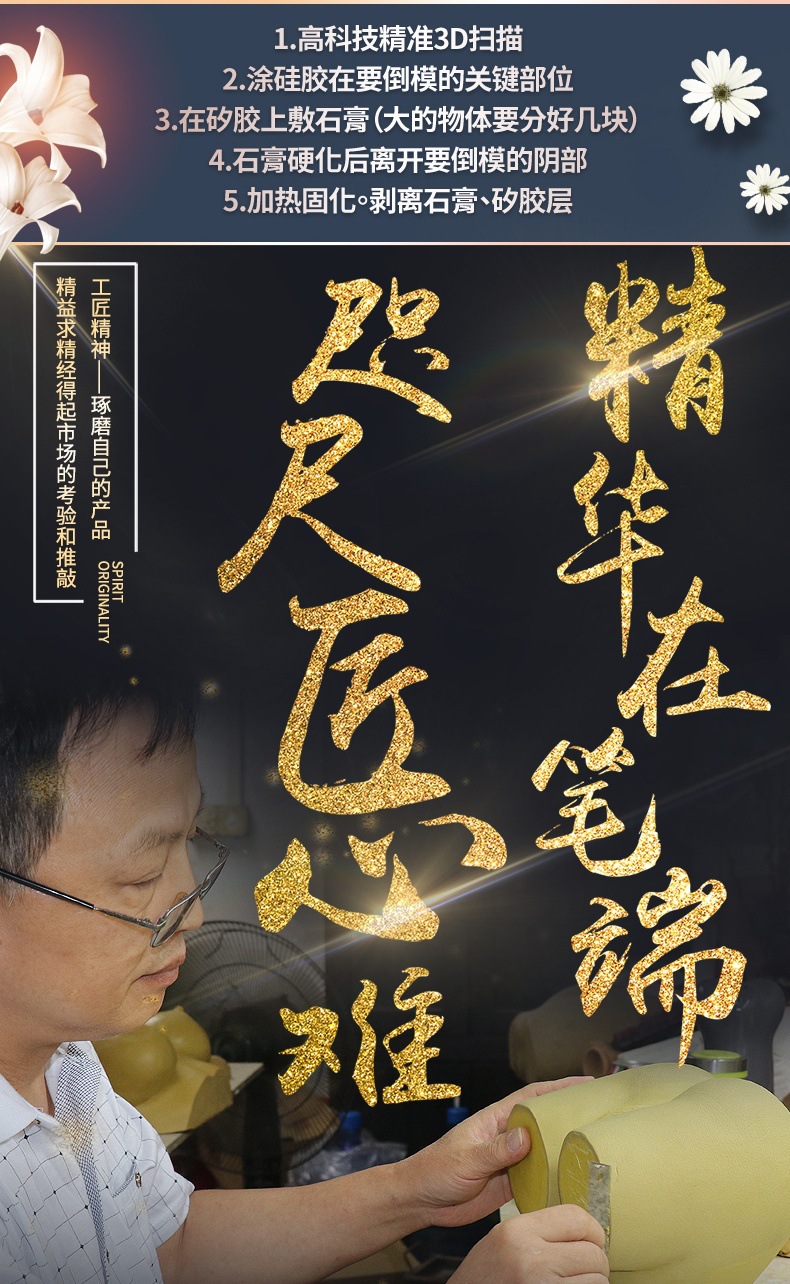 1.高科技精准3D扫描
2.涂硅胶在要倒模的关键部位
3.在矽胶上敷石膏(大的物体要分好几块)
4.石膏硬化后离开要倒模的阴部
5.加热固化。剥离石膏、矽胶层
精华在笔端
咫尺匠心难
工匠精神——琢磨自己的产品
精益求精经得起市场的考验和推敲
SPIRIT
ORIGINALITY